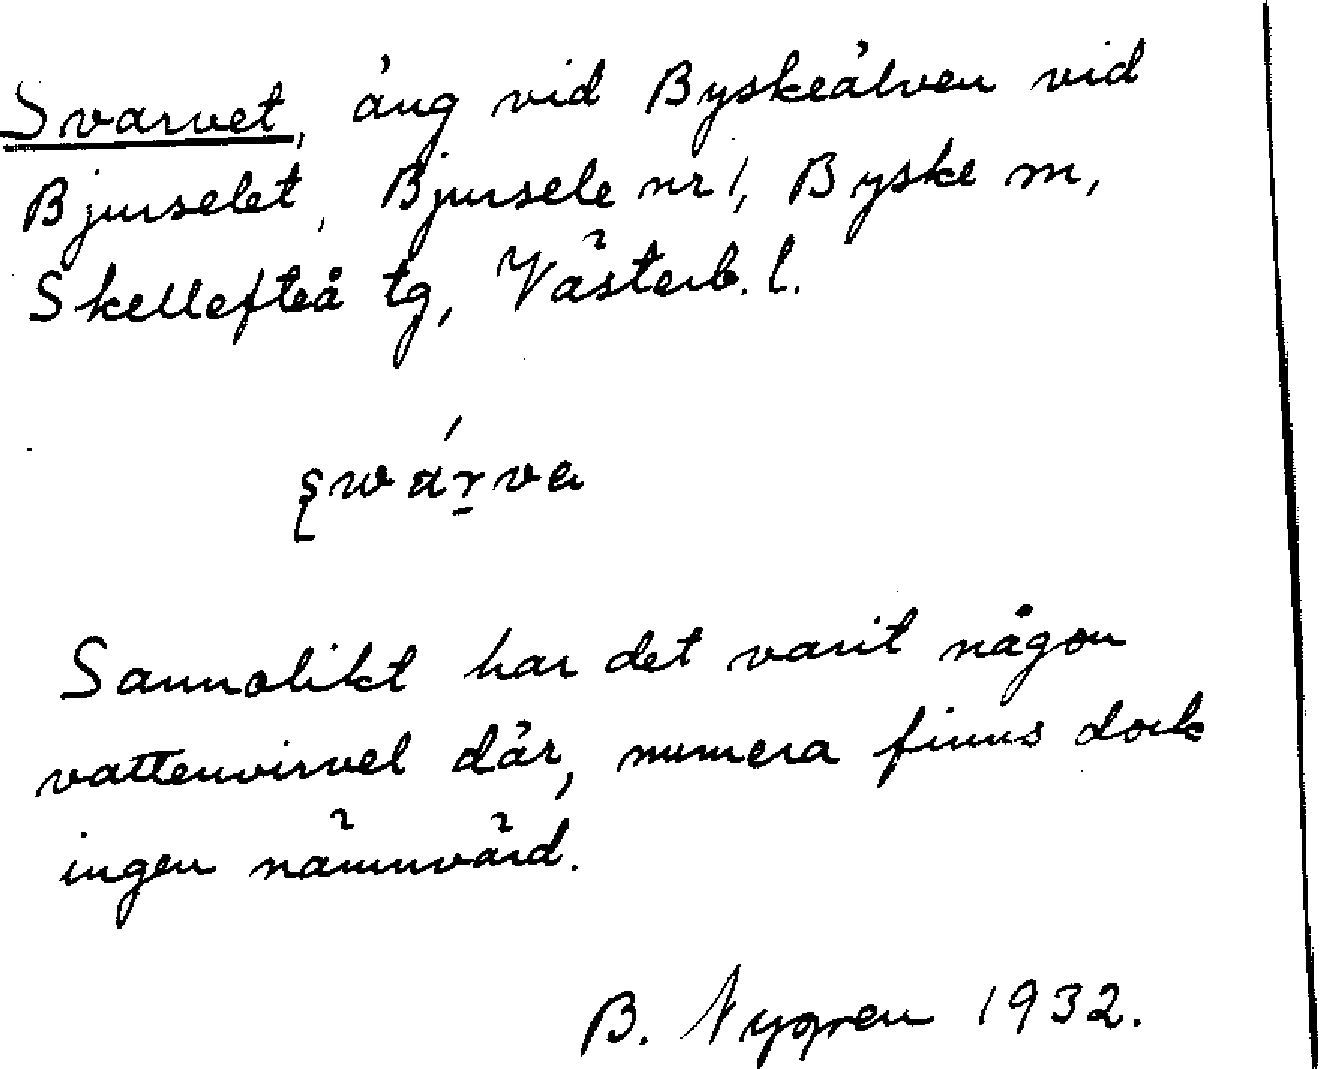 Svarvet, äng vid Byskeälven vid
Bjurselet, Bjursele nr 1, Byske sn,
Skellefteå tg, Västerb. l.
Sannolikt har det varit någon
vattenvirvel där, numera finns dock
ingen nämnvärd.
B. Nygren 1932.